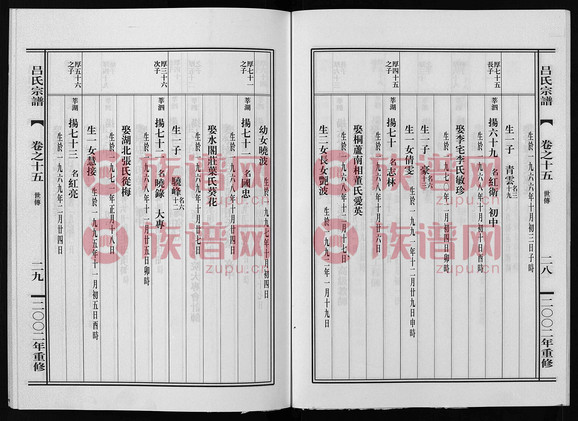 呂氏宗譜
卷之十五
世傳
二八
二〇〇二年重修
生於一九六六年十月初三日子時
生一子 青雲 名十九
厚七十五長子
莘泗
揚六十九 名紅衛 初中
生於一九六九年十月初十日酉時
娶李宅李氏敏珍
生一子 豪 名六
生一女倩雯
生於一九九一年十二月廿九日申時
厚四十五之子
莘泗
揚七十 名志林
生於一九六八年十月廿八日
娶桐蘆南相董氏愛英
生二女長女艷波
生於一九九一年一月十九日
幼女曉波
厚七十一之子
莘湖
揚七十一 名國忠
生於一九六八年十月廿四日
娶水閣莊葉氏葵花
生於一九六九年十月廿七日
生一子 曉峰 名六十二
厚三十六次子
莘泗
揚七十二 名曉錄 大專
生於一九六八年十一月廿五日卯時
娶湖北張氏從梅
生一女慧接
生於一九九五年十一月初五日酉時
厚五十六之子
莘湖
揚七十三 名紅亮
生於一九六九年二月廿四日
呂氏宗譜
卷之十五
世傳
二九
二〇〇二年重修
族谱网
zupu.cn
族谱网
zupu.cn